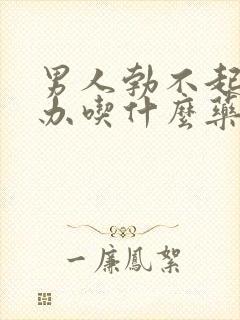 男人勃不起
办喫什麼藥
一廉鳳絮